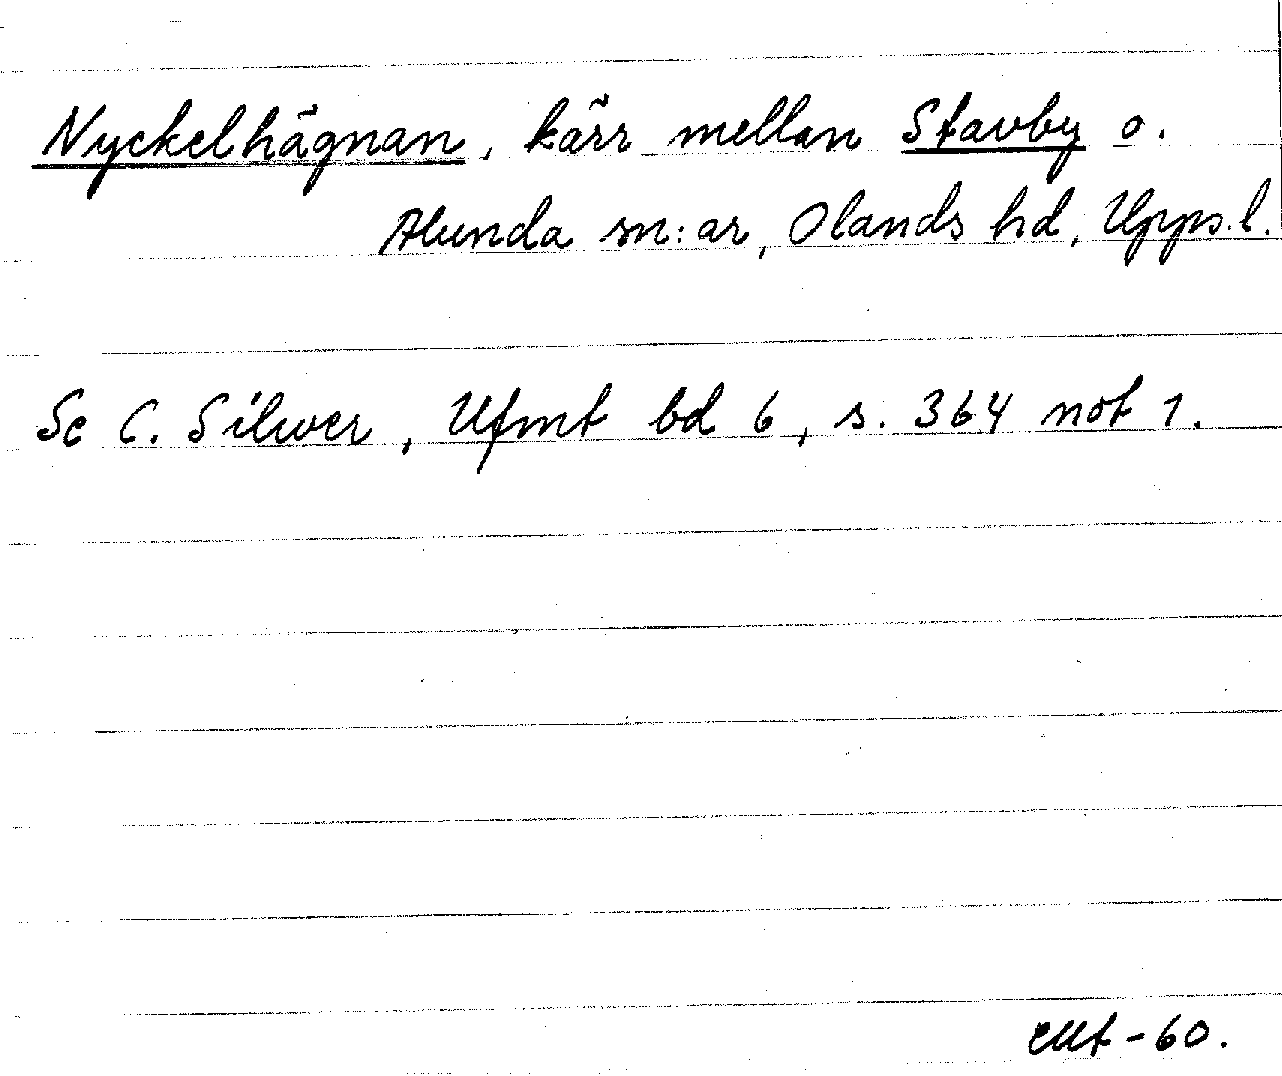 Nyckelhägnan, kärr mellan Stavby o.
Alunda sn:ar, Olands hd, Upps. l.
Se C. Silwer, Ufmt bd 6, s. 364 not 1.
-60.